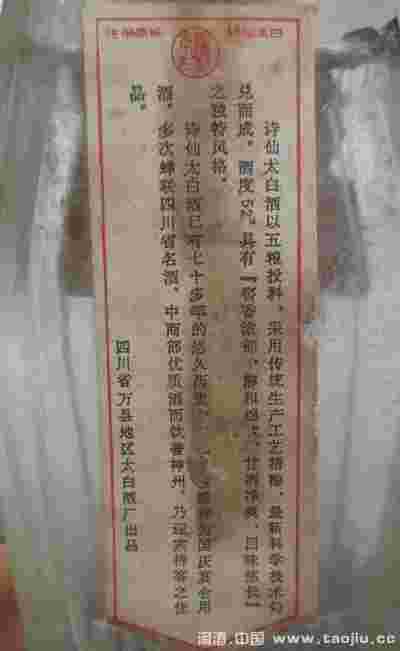 诗仙太白酒以五粮投料，采用传统生产工艺精酿，最新科学技术勾
兑而成。酒度52°，具有『窖香浓郁、醇和 、甘洌净爽、回味悠长』
之独特风格。
诗仙太白酒已有七十多年的悠久历史， 国庆宴会用
酒。多次蝉联四川省名酒，中商部优质酒而饮誉神州，乃逗宾待客之佳
品。
四川省万县地区太白酒厂出品
淘酒.中国 www.taojiu.cc